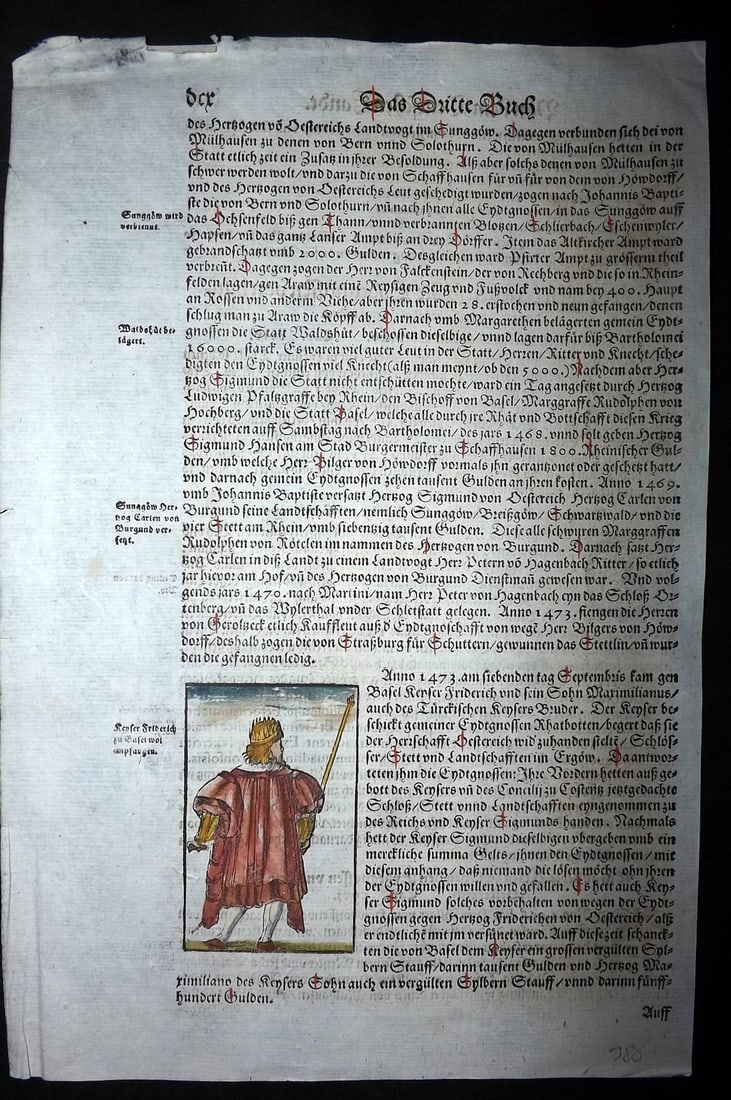 dcx
Das Dritte Buch
des Hertzogen võ Oestereichs Landtvogt im Sunggöw. Dagegen verbunden sich dei von
Mülhausen zu denen von Bern vnnd Solothurn. Die von Mülhausen hetten in der
Statt etlich zeit ein Zusatz in jhrer Besoldung. Alß aber solchs denen von Mülhausen zu
schwer werden wolt/vnd darzu die von Schaffhausen für vñ für von dem von Höwdorff/
vnd des Hertzogen von Oestereichs Leut geschedigt wurden/zogen nach Johannis Bapti-
ste die von Bern vnd Solothurn/vñ nach jhnen alle Eydtgnossen/in das Sunggöw auff
Sunggöw wird
verbrennt.
das Ochsenfeld biß gen Thann/vnnd verbrannten Blotzen/Schlierbach/Eschenwyler/
Hapsen/vñ das gantz Lanser Ampt biß an drey Dörffer. Item das Altkircher Ampt ward
gebrandschatzt vmb 2000. Gulden. Desgleichen ward Pfirter Ampt zu grösserm theil
verbreñt. Dagegen zogen der Herr von Falckenstein/der von Rechberg vnd die so in Rhein-
felden lagen/gen Araw mit einẽ Reysigen Zeug vnd Fußvolck vnd nam bey 400. Haupt
an Rossen vnd anderm Viehe/aber jhren wurden 28. erstochen vnd neun gefangen/denen
schlug man zu Araw die Köpff ab. Darnach vmb Margarethen belägerten gemein Eydt-
Waldshůt be-
lägert.
gnossen die Statt Waldshůt/beschossen dieselbige/vnnd lagen darfür biß Bartholomei
16000. starck. Es waren viel guter Leut in der Statt/Herren/Ritter vnd Knecht/sche-
digten den Eydtgnossen viel Knecht (alß man meynt/ob den 5000.) Nachdem aber Her-
tzog Sigmund die Statt nicht entschütten mochte/ward ein Tag angesetzt durch Hertzog
Ludwigen Pfaltzgraffe bey Rhein/den Bischoff von Basel/Marggraffe Rudolphen von
Hochberg/vnd die Statt Basel/welche alle durch jre Rhät vnd Bottschafft diesen Krieg
verrichteten auff Sambstag nach Bartholomei/des jars 1468. vnnd solt geben Hertzog
Sigmund Hansen am Stad Burgermeister zu Schaffhausen 1800. Rheinischer Gul-
den/vmb welche Herr Pilger von Höwdorff vormals jhn gerantzonet oder geschetzt hatt/
vnd darnach gemein Eydtgnossen zehen tausent Gulden an jhren kosten. Anno 1469.
vmb Johannis Baptiste versatzt Hertzog Sigmund von Oestereich Hertzog Carlen von
Sunggöw Her-
tzog Carlen von
Burgund ver-
setzt.
Burgund seine Landtschafften/nemlich Sunggöw/Breißgöw/Schwartzwald/vnd die
vier Stett am Rhein/vmb siebentzig tausent Gulden. Diese alle schwüren Marggraffen
Rudolphen von Rötelen im nammen des Hertzogen von Burgund. Darnach satzt Her-
tzog Carlen in diß Landt zu einem Landtvogt Herr Petern võ Hagenbach Ritter/so etlich
jar hievor am Hof/vñ des Hertzogen von Burgund Dienstmañ gewesen war. Vnd vol-
gends jars 1470. nach Martini/nam Herr Peter von Hagenbach eyn das Schloß Or-
tenberg/vñ das Wylerthal vnder Schletstatt gelegen. Anno 1473. fiengen die Herren
von Geroltzeck etlich Kauffleut auß d' Eydtgnoschafft von wegẽ Herr Bilgers von Höw-
dorff/deshalb zogen die von Straßburg für Schuttern/gewunnen das Stettlin/vñ wur-
den die gefangnen ledig.
Anno 1473. am siebenden tag Septembris kam gen
Basel Keyser Friderich vnd sein Sohn Maximilianus/
auch des Türckischen Keysers Bruder. Der Keyser be-
Keyser Friderich
zu Basel wol
empfangen.
schickt gemeiner Eydtgnossen Rhatbotten/begert daß sie
der Herrschafft Oestereich wid' zuhanden steltẽ/Schlös-
ser/Stett vnd Landtschafften im Ergöw. Da antwor-
teten jhm die Eydtgnossen: Jhre Vordern hetten auß ge-
bott des Keysers vñ des Concilij zu Costentz jetztgedachte
Schloß/Stett vnnd Landtschafften eyngenommen zu
des Reichs vnd Keyser Sigmunds handen. Nachmals
hett der Keyser Sigmund dieselbigen vbergeben vmb ein
merckliche summa Gelts/jhnen den Eydtgnossen/mit
diesem anhang/daß niemand die lösen möcht ohn jhren
der Eydtgnossen willen vnd gefallen. Es hett auch Key-
ser Sigmund solches vorbehalten von wegen der Eydt-
gnossen gegen Hertzog Friderichen von Oestereich/alß
er endtlichẽ mit jm versünet ward. Auff diese zeit schanck-
ten die von Basel dem Keyser ein grossen vergülten Syl-
bern Stauff/darinn tausent Gulden vnd Hertzog Ma-
ximiliano des Keysers Sohn auch ein vergülten Sylbern Stauff/vnnd darinn fünff-
hundert Gulden.
Auff